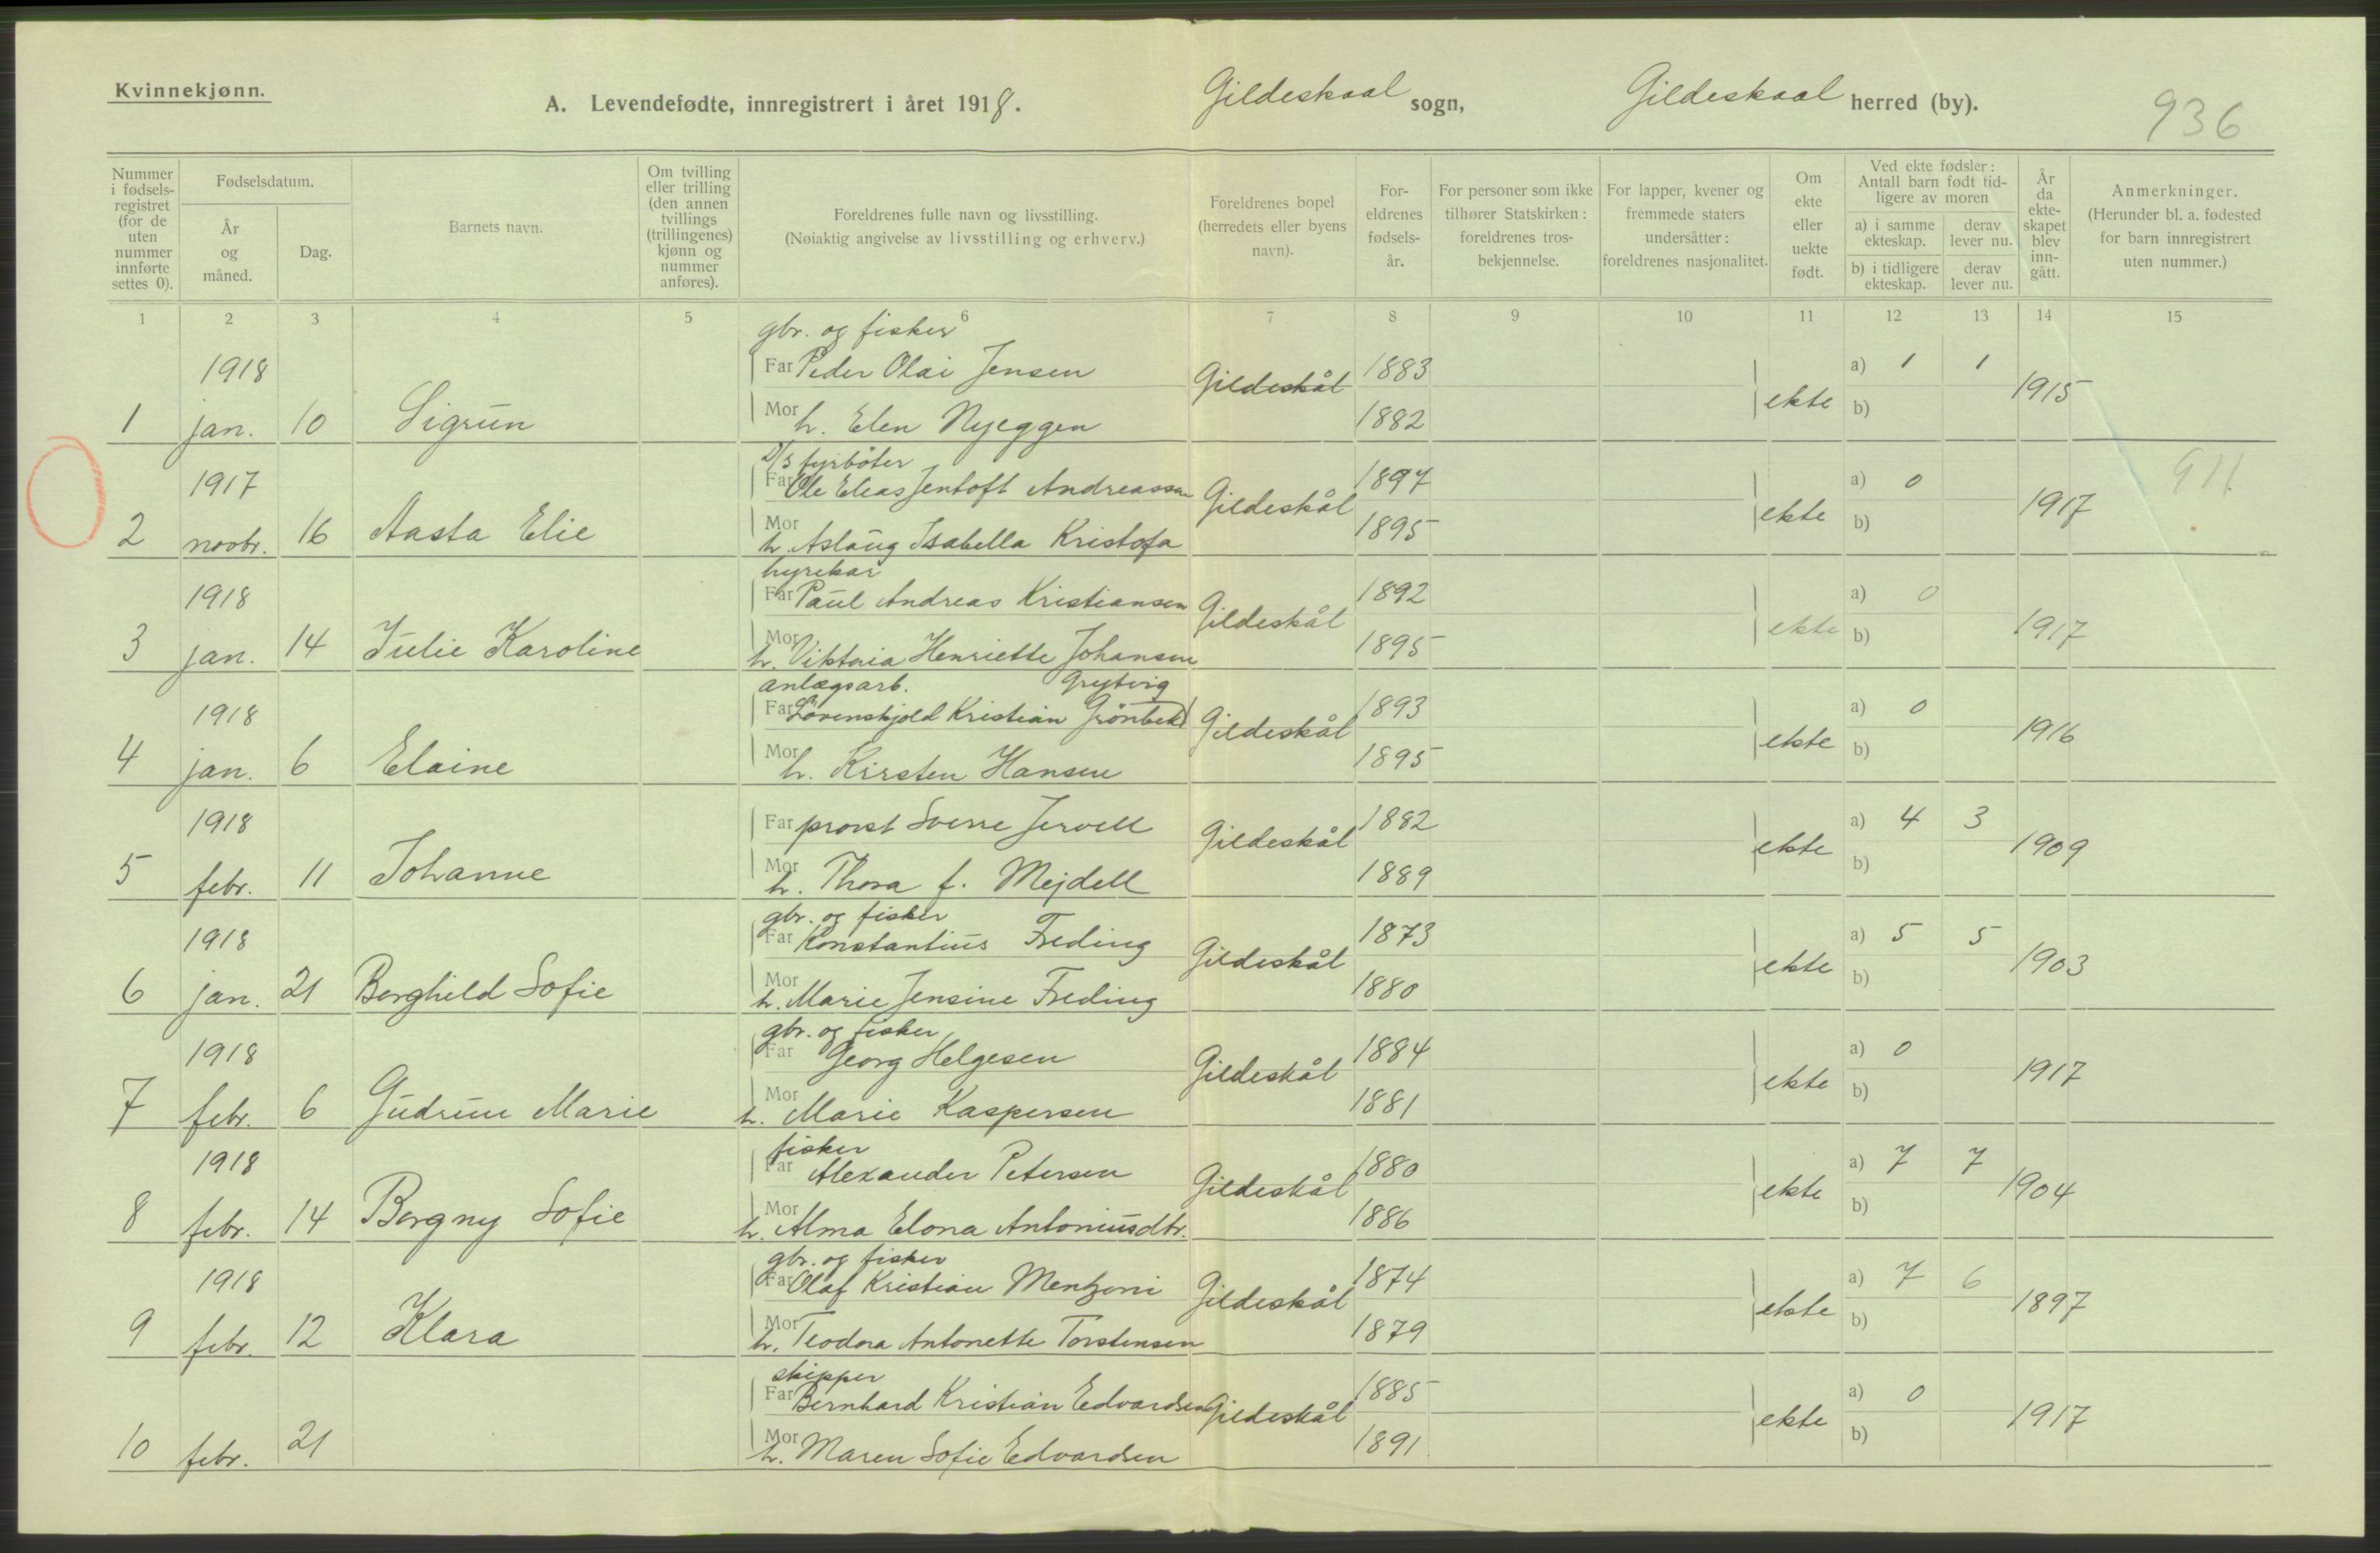 Kvinnekjønn.
A. Levendefødte, innregistrert i året 1918.
Gildeskaal sogn,
Gildeskaal herred (by).
936
Nummer i fødsels-registret (for de uten nummer innførte settes 0).
Fødselsdatum.
År og måned.
Dag.
Barnets navn.
Om tvilling eller trilling (den annen tvillings (trillingenes) kjønn og nummer anføres).
Foreldrenes fulle navn og livsstilling.
(Nøiaktig angivelse av livsstilling og erhverv.)
Foreldrenes bopel (herredets eller byens navn).
For-eldrenes fødsels-år.
For personer som ikke tilhører Statskirken: foreldrenes tros-bekjennelse.
For lapper, kvener og fremmede staters undersåtter: foreldrenes nasjonalitet.
Om ekte eller uekte født.
Ved ekte fødsler: Antall barn født tid-ligere av moren
a) i samme ekteskap.
derav lever nu.
b) i tidligere ekteskap.
derav lever nu.
År da ekte-skapet blev inn-gått.
Anmerkninger.
(Herunder bl. a. fødested for barn innregistrert uten nummer.)
1 2 3 4 5 6 7 8 9 10 11 12 13 14 15
gbr. og fisker
1918 Far Peder Olai Jensen Gildeskål 1883 a) 1 1
1 jan. 10 Sigrun Mor h. Elen Nyeggen 1882 ekte b) 1915
D/S fyrböter
1917 Far Ole Elias Jentoft Andreassen Gildeskål 1897 a) 0 911
2 novbr. 16 Aasta Elie Mor h. Aslaug Isabella Kristofa 1895 ekte b) 1917
hyrekar
1918 Far Paul Andreas Kristiansen Gildeskål 1892 a) 0
3 jan. 14 Julie Karoline Mor h. Viktoria Henriette Johansen 1895 ekte b) 1917
anlægsarb. Grytvig
1918 Far Lövenskjold Kristian Grönbek Gildeskål 1893 a) 0
4 jan. 6 Elaine Mor h. Kirsten Hansen 1895 ekte b) 1916
1918 Far provst Sverre Jervell Gildeskål 1882 a) 4 3
5 febr. 11 Johanne Mor h. Thora f. Mejdell 1889 ekte b) 1909
gbr. og fisker
1918 Far Konstantius Freding Gildeskål 1873 a) 5 5
6 jan. 21 Borghild Sofie Mor h. Marie Jensine Freding 1880 ekte b) 1903
gbr. og fisker
1918 Far Georg Helgesen Gildeskål 1884 a) 0
7 febr. 6 Gudrun Marie Mor h. Marie Kaspersen 1881 ekte b) 1917
fisker
1918 Far Alexander Petersen Gildeskål 1880 a) 7 7
8 febr. 14 Borgny Sofie Mor h. Alma Elona Antoniusdtr. 1886 ekte b) 1904
gbr. og fisker
1918 Far Olaf Kristian Mentzoni Gildeskål 1874 a) 7 6
9 febr. 12 Klara Mor h. Teodora Antonette Torstensen 1879 ekte b) 1897
skipper
Far Bernhard Kristian Edvardsen Gildeskål 1885 a) 0
10 febr. 21 Mor h. Maren Sofie Edvardsen 1891 ekte b) 1917